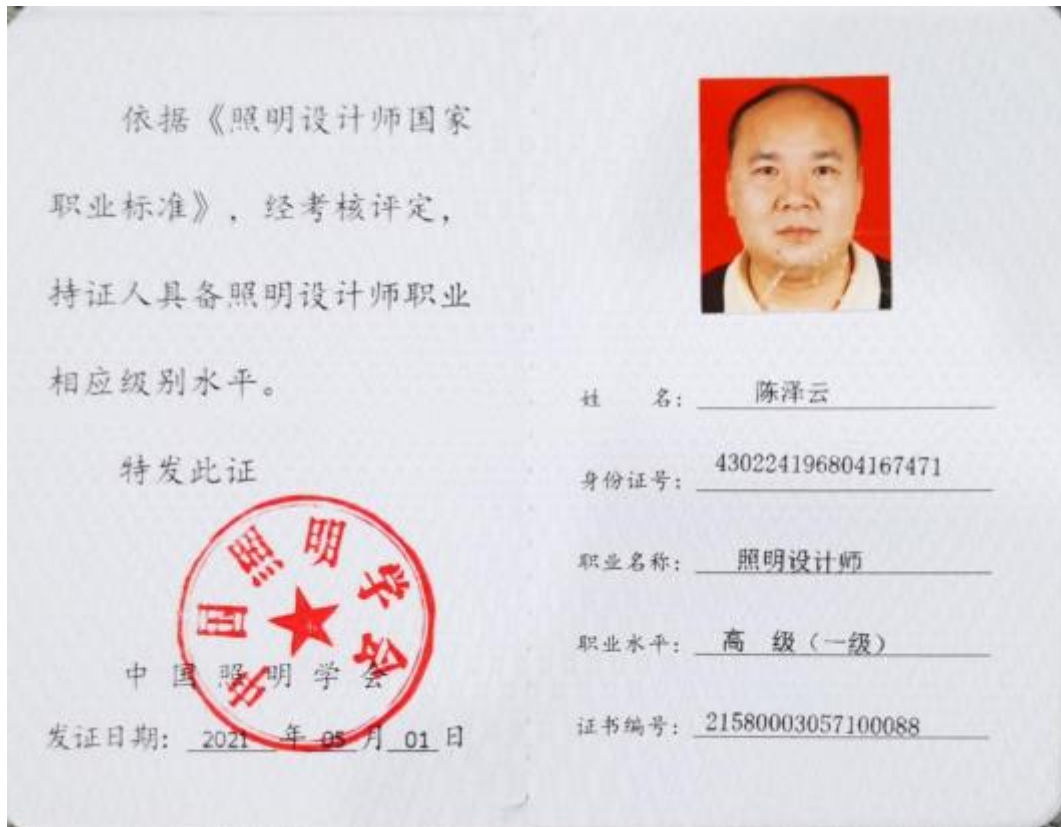 依据《照明设计师国家
职业标准》，经考核评定，
持证人具备照明设计师职业
相应级别水平。
特发此证
中国照明学会
中国照明学会
发证日期: 2021 年 05 月 01 日
姓 名: 陈泽云
身份证号: 430224196804167471
职业名称: 照明设计师
职业水平: 高 级（一级）
证书编号: 21580003057100088